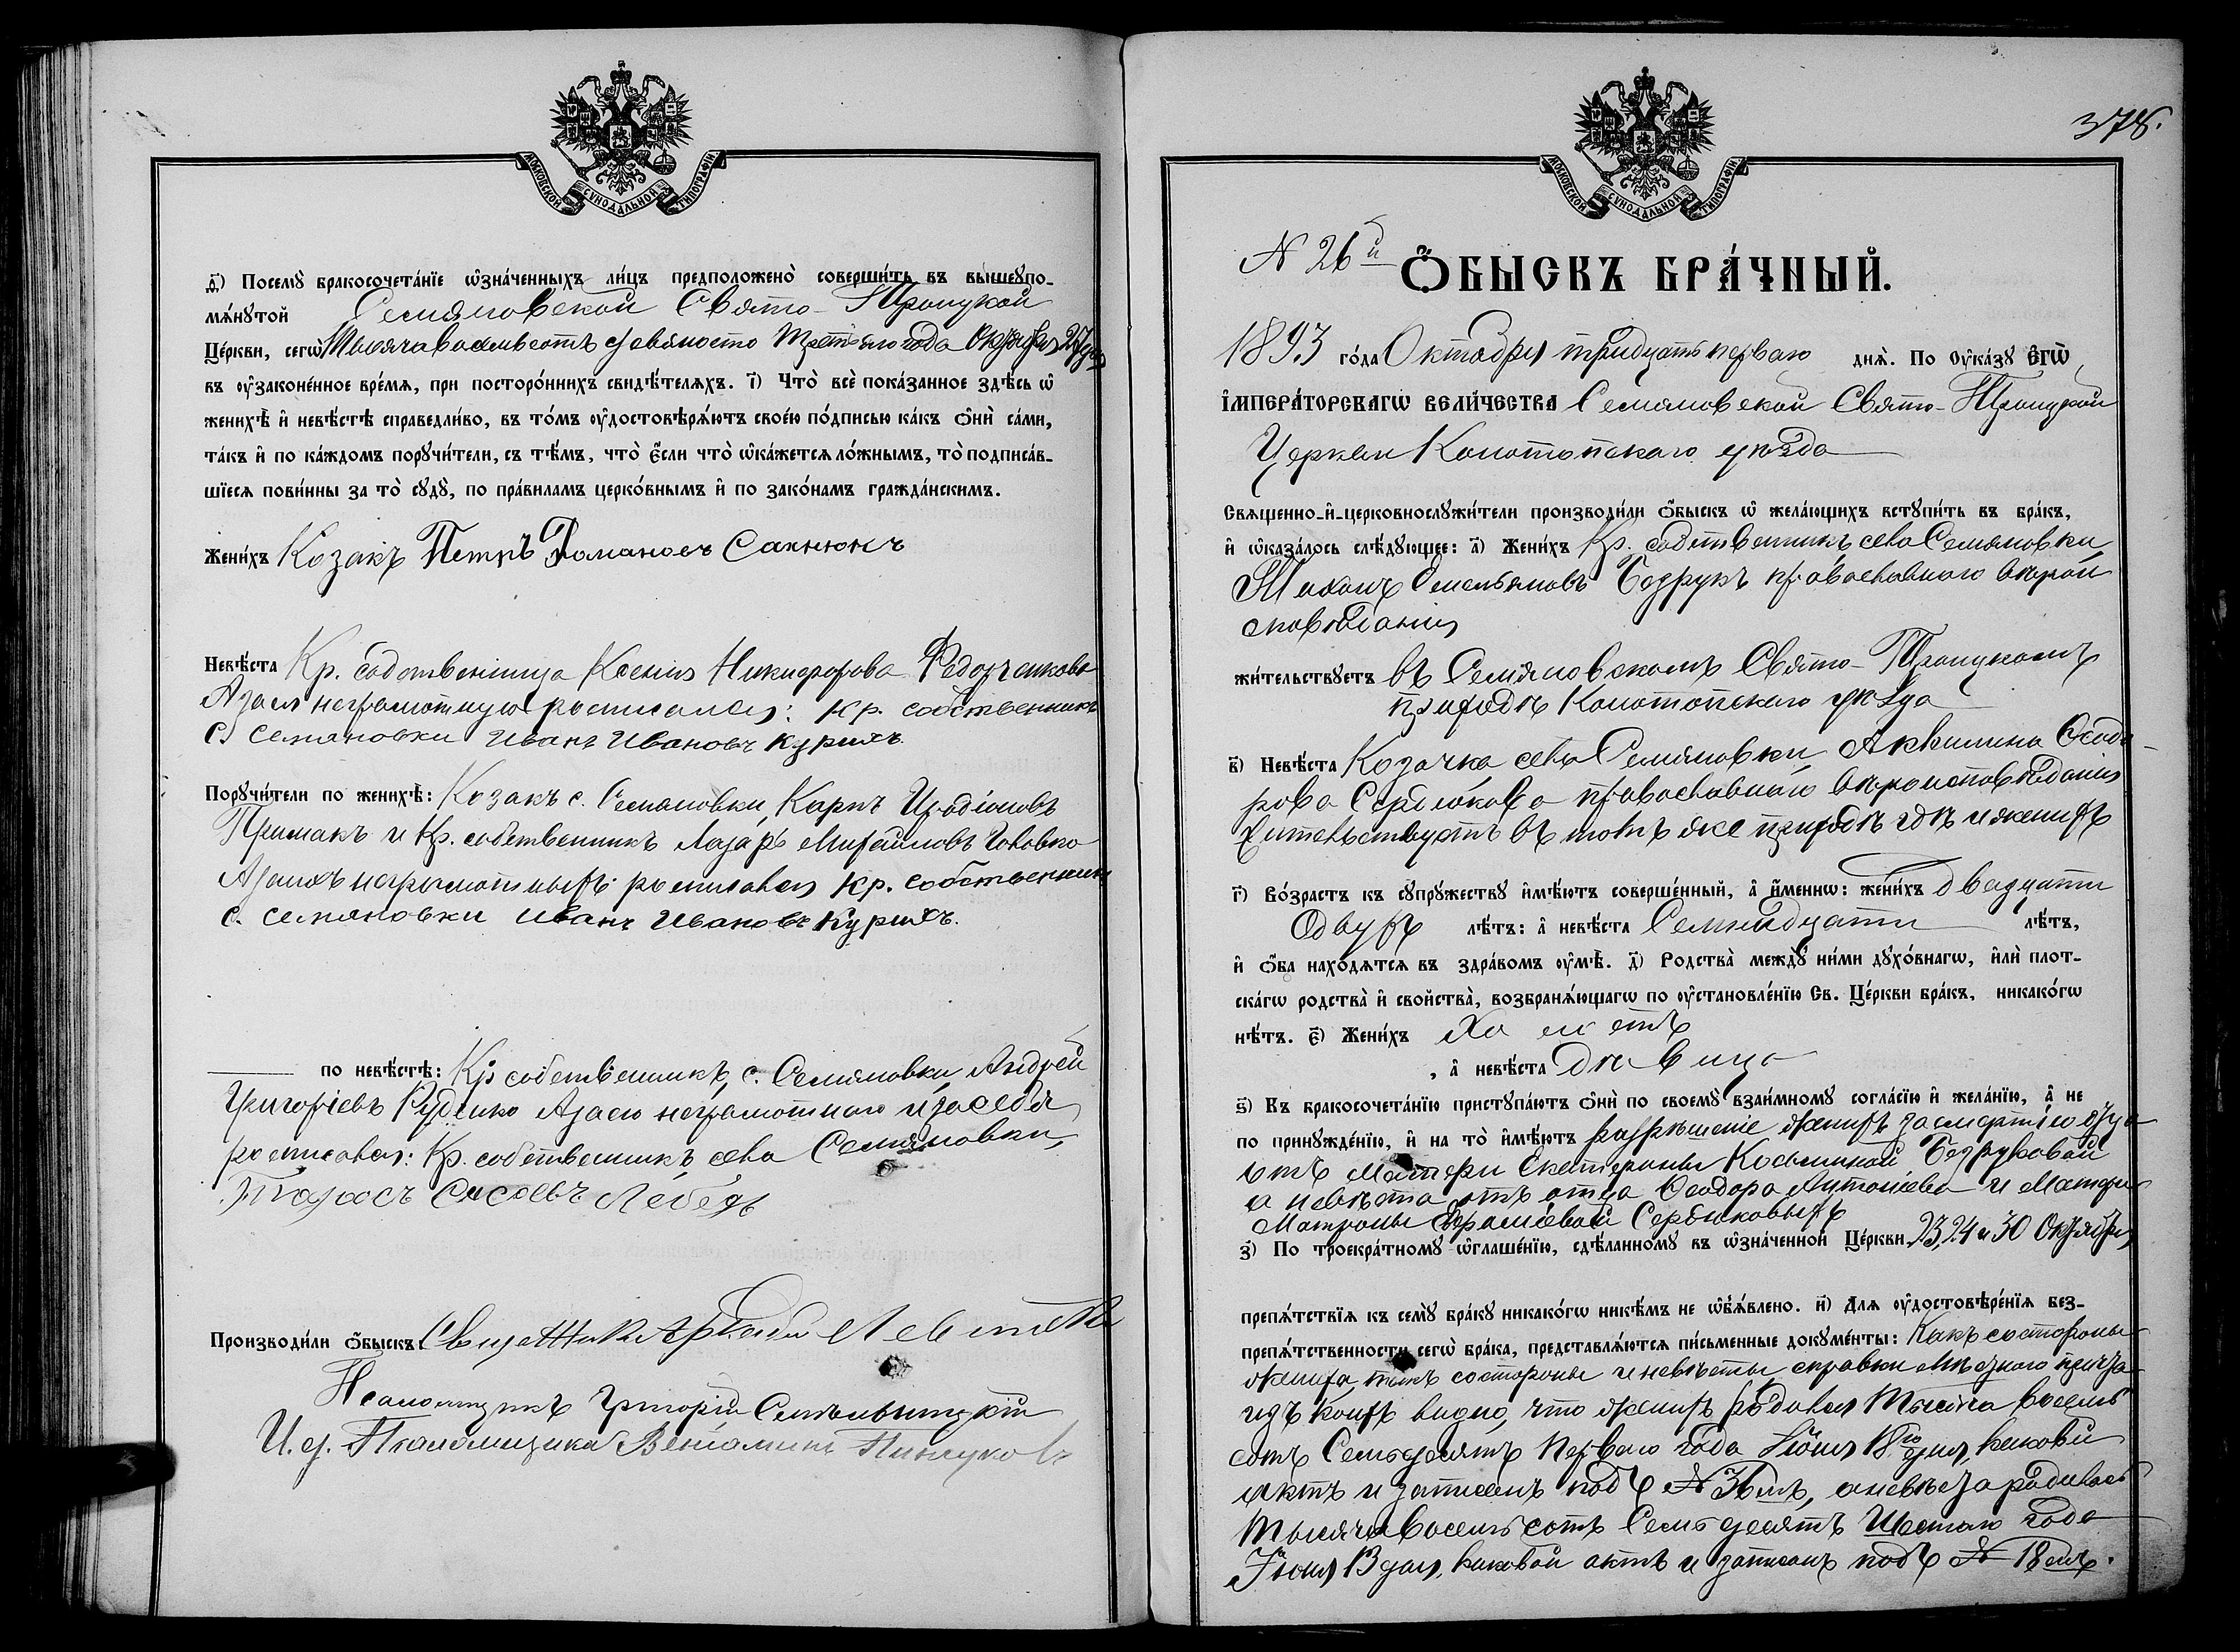 МОСКОВСКОЙ СѴНОДАЛЬНОЙ ТИПОГРАФІИ.
д҃) Посемꙋ̀ бракосочета́нїе ѡзна́ченныхъ ли́цъ предположено̀ соверши́ть въ вышеꙋпо-
мѧ́нꙋтой Семяновской Свято-Троицкой
Це́ркви, сегѡ̀ Тысяча восемьсотъ девяносто Третьяго года Октября 27 дня
въ ᲂу҆зако́ненное вре́мѧ, при посторо́ннихъ свидѣ́телѧхъ. і҃) Что̀ всѐ пока́занное здѣ́сь ѡ҆
женихѣ̀ и҆ невѣ́стѣ справедли́во, въ то́мъ ᲂу҆достовѣрѧ́ютъ свое́ю по́дписью ка́къ ѻ҆нѝ са́ми,
та́къ и҆ по ка́ждомъ порꙋчи́тели, съ тѣ́мъ, что̀ є҆́сли что̀ ѡ҆ка́жетсѧ ло́жнымъ, то̀ подписа́в-
шїесѧ пови́нны за то̀ сꙋдꙋ̀, по пра́виламъ церко́внымъ и҆ по зако́намъ гражда́нскимъ.
Жени́хъ Козакъ Петръ Романовъ Сакнюкъ
Невѣ́ста Кр. собственница Ксенія Никифорова Федорченкова
А за ея неграмотную росписался: кр. собственникъ
с. Семяновки Иванъ Ивановъ Куриехъ.
Порꙋчи́тели по женихѣ̀: Козакъ с. Семяновки, Карпъ Иродіоновъ
Примакъ и Кр. собственникъ Лазарь Михайловъ Головко
А за ихъ неграмотныхъ росписался кр. собственникъ
с. Семяновки Иванъ Ивановъ Куриехъ.
по невѣ́стѣ: Кр собственникъ с. Семяновки Андрей
Григоріевъ Руденко А за его неграмотнаго и за себя
росписался: Кр. собственникъ села Семяновки,
Тарасъ Сисоевъ Лебедь
Производи́ли ѻ҆́быскъ: Священникъ Аркадій Левитскій
Псаломщикъ Григорій
И. д. Псаломщика Веніаминъ
378.
МОСКОВСКОЙ СѴНОДАЛЬНОЙ ТИПОГРАФІИ.
N 26й Ѻ҆́БЫСКЪ БРА́ЧНЫЙ.
1893 го́да Октября тридцать перваго днѧ̀. По Оу҆ка́зꙋ Є҆гѡ̀
І҆мпера́торскагѡ вели́чества Семяновской Свято-Троицкой
Церкви Конотопскаго уѣзда
Свѧщенно-и҆-церковнослꙋжи́тели производи́ли ѻ҆́быскъ ѡ҆ жела́ющихъ встꙋпи́ть въ бра́къ,
и҆ ѡ҆каза́лось слѣ́дꙋющее: а҃) Жени́хъ Кр. собственникъ села Семяновки
Тихонъ Емельяновъ Бедрукъ православнаго вѣрои
сповѣданія
жи́тельствꙋетъ въ Семяновскомъ Свято-Троицкомъ
приходѣ Конотопскаго уѣзда
в҃) Невѣ́ста Козачка села Семяновки Акилина Ѳеодо-
рова Сердюкова православнаго вѣроисповѣданія
жительствуетъ въ томъ же приходѣ гдѣ и женихъ
г҃) Во́зрастъ къ сꙋпрꙋ́жествꙋ и҆мѣ́ютъ соверше́нный, а҆ и҆́менно: жени́хъ двадцати
двухъ лѣ́тъ: а҆ невѣ́ста Семнадцати лѣ́тъ,
и҆ ѻ҆́ба нахо́дѧтсѧ въ здра́вомъ ᲂу҆мѣ̀. д҃) Родства̀ междꙋ̀ ни́ми дꙋхо́внагѡ, и҆лѝ плот-
ска́гѡ родства̀ и҆ свойства̀, возбранѧ́ющагѡ по ᲂу҆становле́нїю Св. Це́ркви бра́къ, никако́гѡ
нѣ́тъ. є҃) Жени́хъ Холостъ
, а҆ невѣ́ста дѣвица
ѕ҃) Къ бракосочета́нїю пристꙋпа́ютъ ѻ҆нѝ по своемꙋ̀ взаи́мномꙋ согла́сїю и҆ жела́нїю, а҆ не
по принꙋжде́нїю, и҆ на то̀ и҆мѣ́ютъ разрѣшеніе женихъ за смертію отца
отъ матери Екатерины Косьминой Бедруковой
а невѣста отъ отца Ѳеодора Антоніева и матери
Матроны Сердюковыхъ
з҃) По троекра́тномꙋ ѡ҆глаше́нїю, сдѣ́ланномꙋ въ ѡ҆зна́ченной Це́ркви 23, 24 и 30 Октября
препѧ́тствїѧ къ семꙋ̀ бра́кꙋ никако́гѡ никѣ́мъ не ѡ҆б̾ѧ́влено. и҃) Длѧ ᲂу҆достовѣре́нїѧ без-
препѧ́тственности сегѡ̀ бра́ка, представлѧ́ютсѧ пи́сьменные докꙋме́нты: Какъ со стороны
жениха, такъ со стороны и невѣсты справки мѣстнаго причта
изъ коихъ видно, что женихъ родился Тысяча восемь
сотъ Семьдесятъ Перваго года Іюня 18го дня, каковый
актъ и записанъ подъ N 36мъ, а невѣста родилась
Тысяча восемьсотъ Семьдесятъ Шестаго года
Іюня 13 дня, каковой актъ и записанъ подъ N 18мъ.